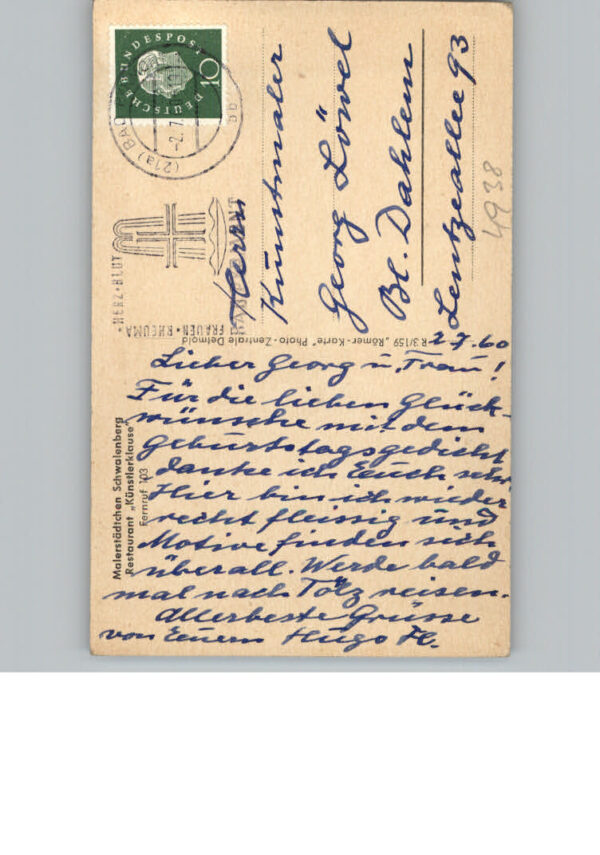 DEUTSCHE BUNDESPOST
10
(21a) BAD
-2.7.
HERZ • BLUT
FRAUEN • RHEUMA
Herrn
Kunstmaler
Georg Löwel
Bl. Dahlem
Lentzeallee 93
4938
R 3/159 „Römer-Karte" Photo-Zentrale Detmold
Malerstädtchen Schwalenberg
Restaurant „Künstlerklause"
Fernruf 103
2.7.60
Lieber Georg u. Frau!
Für die lieben Glück-
wünsche mit dem
Geburtstagsgedicht
danke ich Euch sehr.
Hier bin ich wieder
recht fleissig und
Motive finden sich
überall. Werde bald
mal nach Tölz reisen.
Allerbeste Grüsse
von Euerm Hugo Fl.